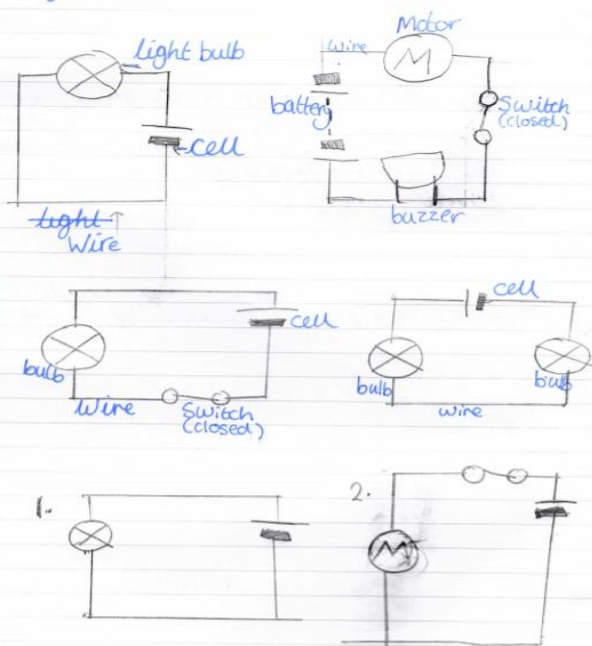 light bulb
cell
~~light~~ ↑
Wire
Motor
Wire
M
battery
Switch
(closed)
buzzer
cell
bulb
Wire
Switch
(closed)
cell
bulb
bulb
wire
1.
2.
M